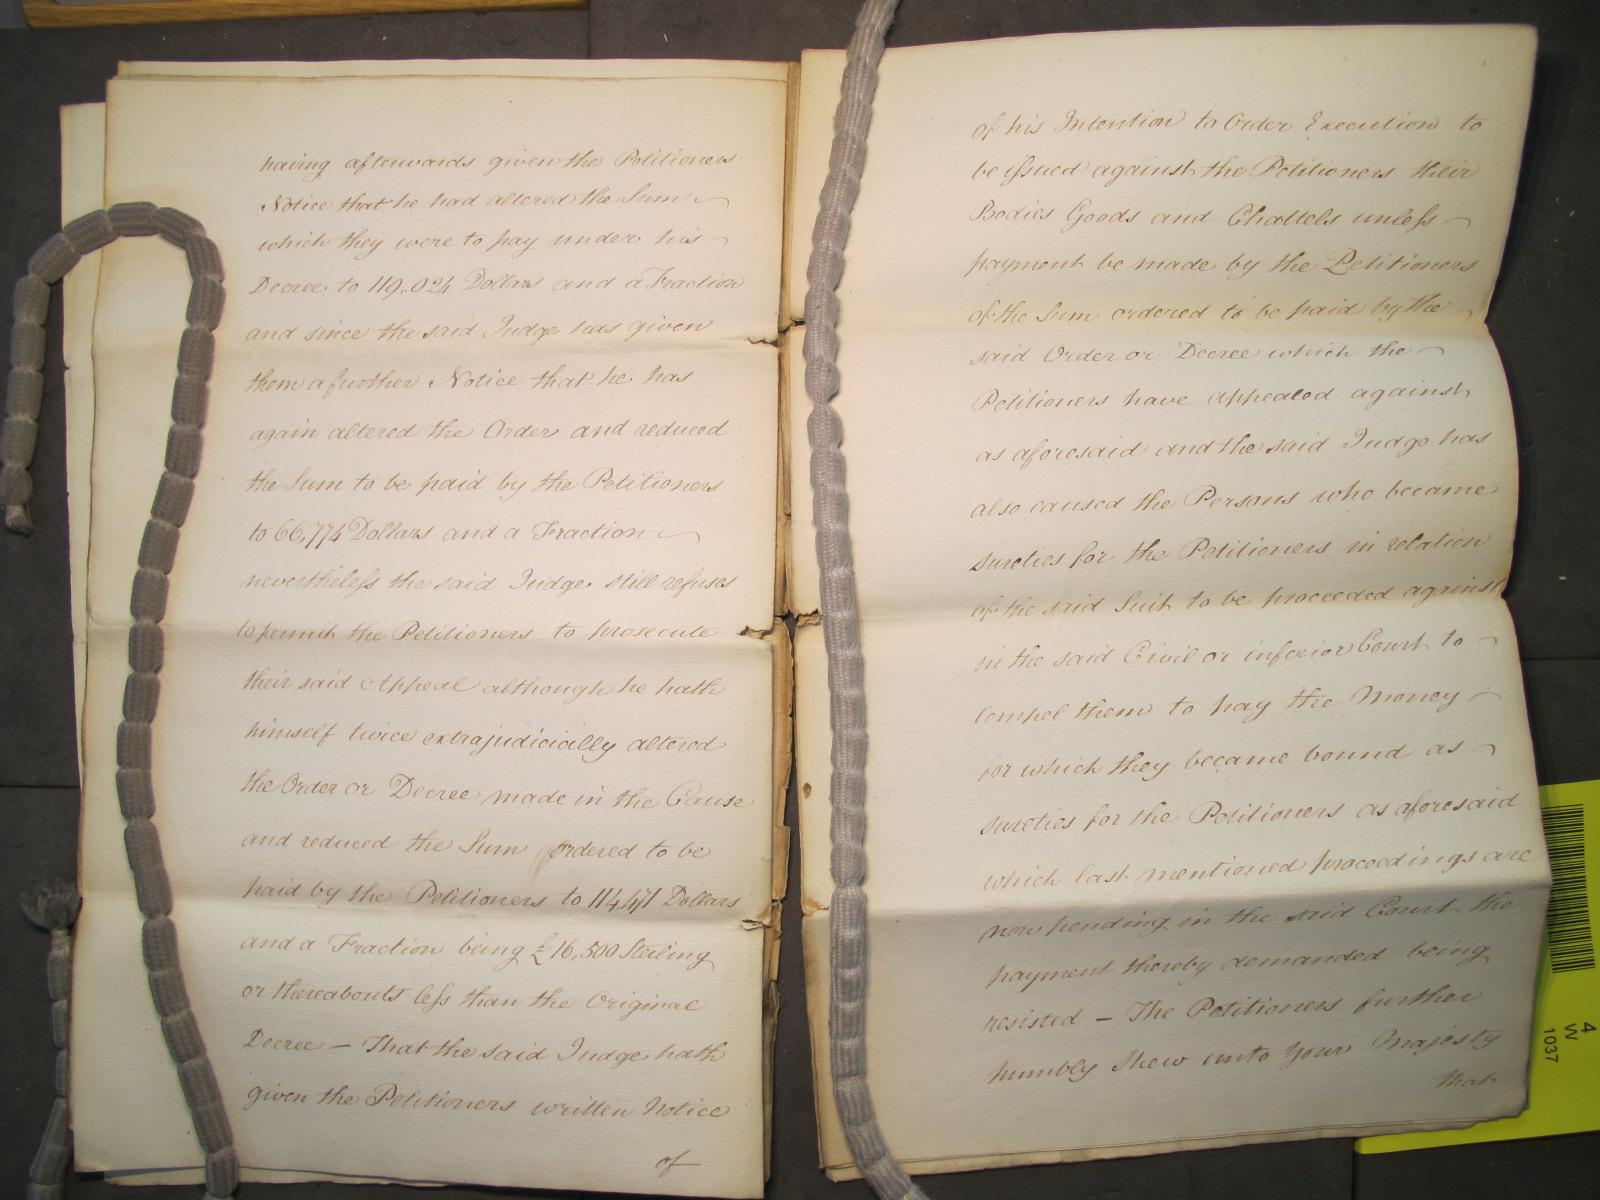 having afterwards given the Petitioners
Notice that he had altered the Sum
which they were to pay under his
Decree to 119,024 Dollars and a Fraction
and since the said Judge has given
them a further Notice that he has
again altered the Order and reduced
the Sum to be paid by the Petitioners
to 66,774 Dollars and a Fraction
nevertheless the said Judge still refuses
to permit the Petitioners to prosecute
their said Appeal although he hath
himself twice extrajudicially altered
the Order or Decree made in the Cause
and reduced the Sum Ordered to be
paid by the Petitioners to 114,471 Dollars
and a Fraction being £16,500 Sterling
or thereabouts less than the Original
Decree — That the said Judge hath
given the Petitioners written Notice
of
of his Intention to Order Execution to
be issued against the Petitioners their
Bodies Goods and Chattels unless
payment be made by the Petitioners
of the Sum ordered to be paid by the
said Order or Decree which the
Petitioners have appealed against
as aforesaid and the said Judge has
also caused the Persons who became
sureties for the Petitioners in relation
of the said Suit to be proceeded against
in the said Civil or inferior Court to
compel them to pay the Money
for which they became bound as
sureties for the Petitioners as aforesaid
which last mentioned proceedings are
now pending in the said Court the
payment thereby demanded being
resisted — The Petitioners further
humbly Shew unto Your Majesty
that
4
W
1037